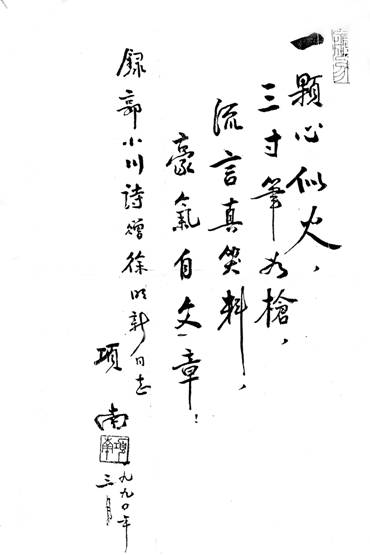 一顆心似火，
三寸筆如槍，
流言真笑料，
豪氣自文章！
錄郭小川詩贈徐明新同志
項南
項南
一九九〇年
三月